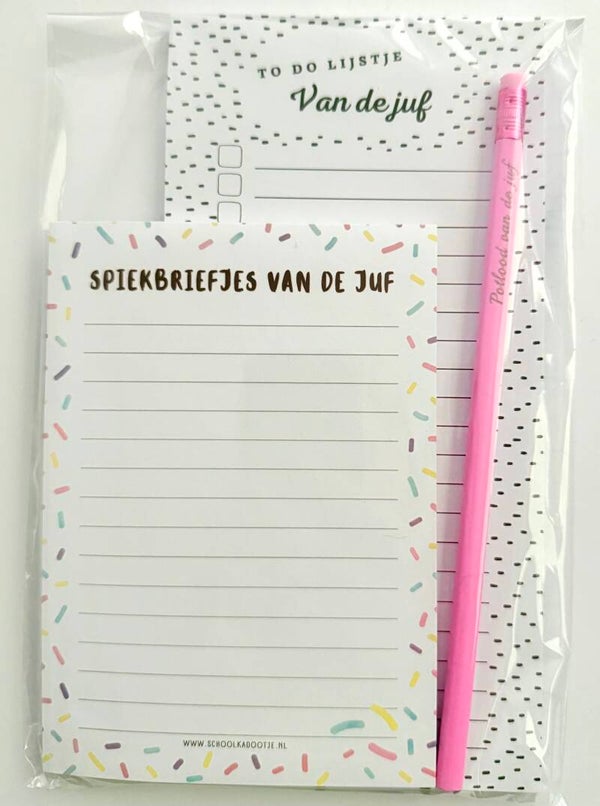 TO DO LIJSTJE
Van de juf
Potlood van de juf
SPIEKBRIEFJES VAN DE JUF
WWW.SCHOOLKADOOTJE.NL